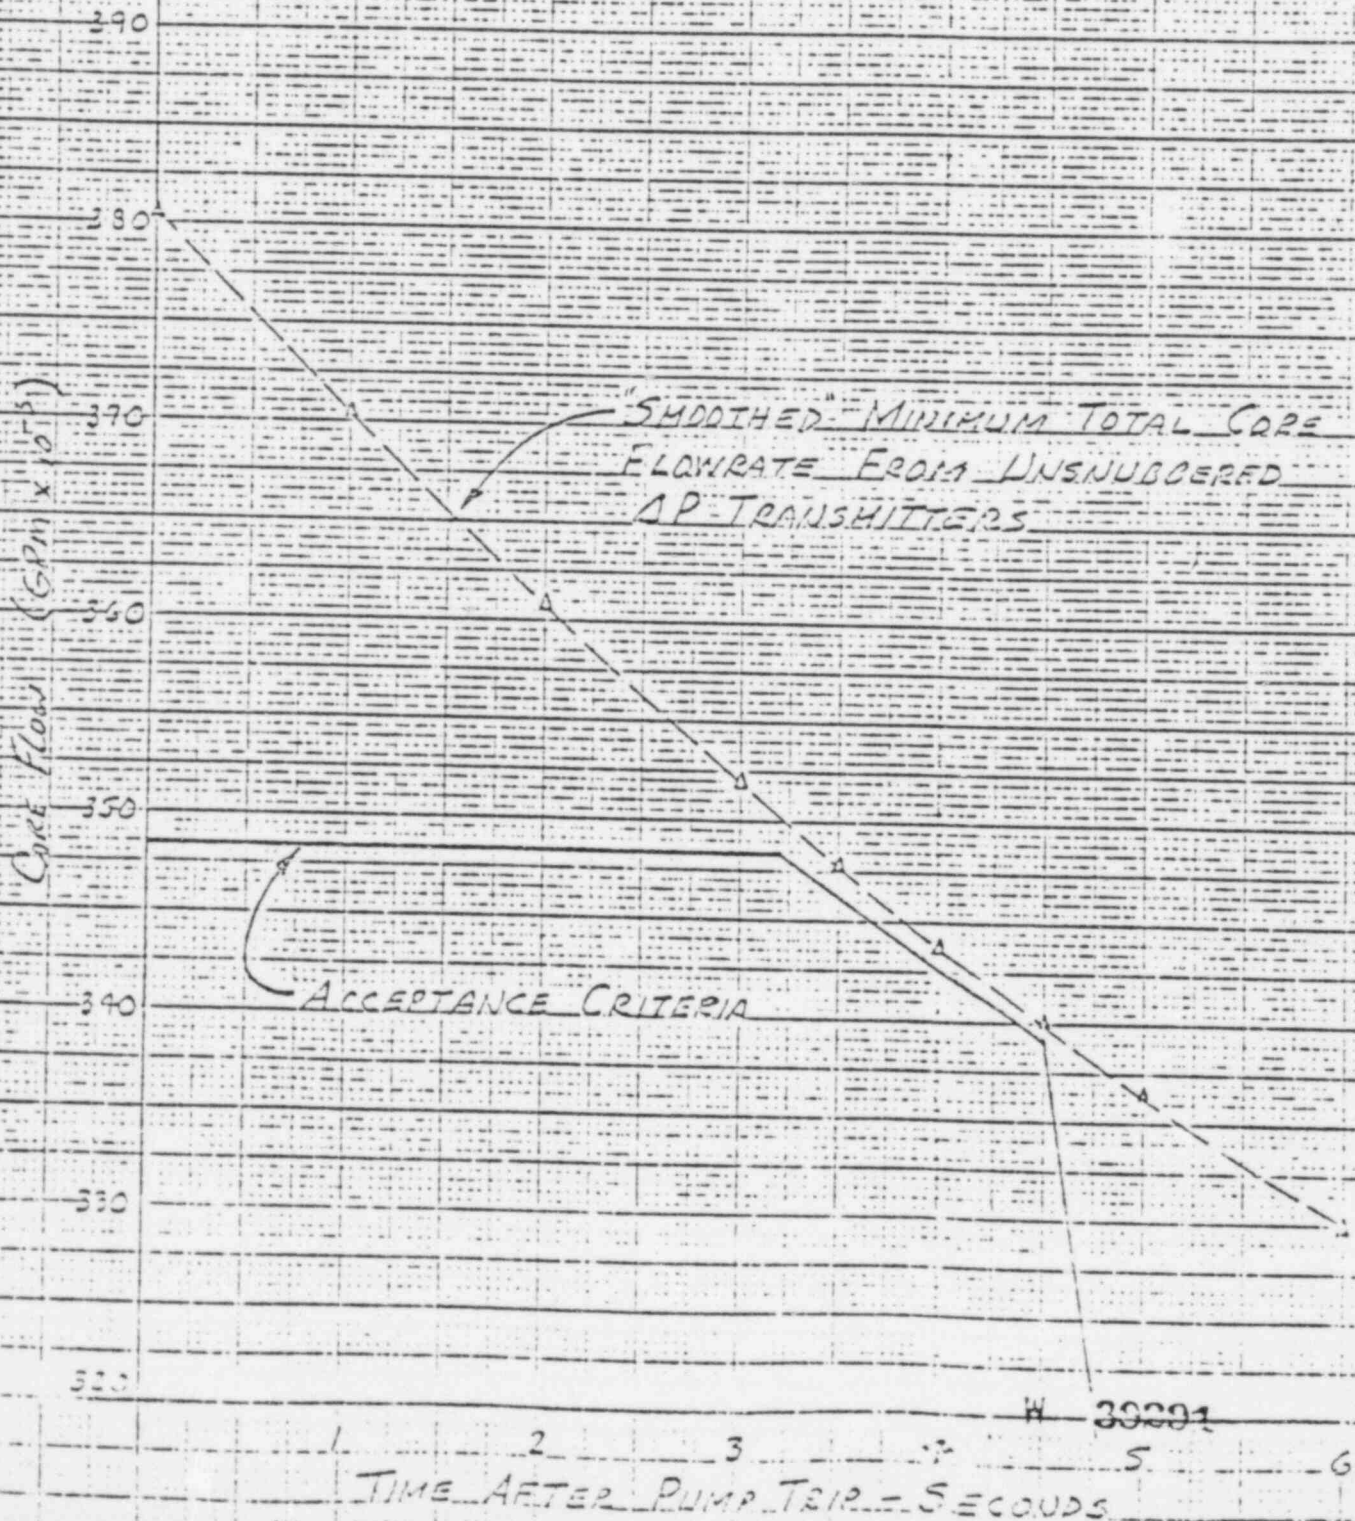 390
380
370
360
350
340
330
320
CORE FLOW (GPM x 10⁻³)
"SMOOTHED" MINIMUM TOTAL CORE
FLOWRATE FROM UNSNUBBERED
ΔP TRANSMITTERS
ACCEPTANCE CRITERIA
W 30201
1 2 3 4 5 6
TIME AFTER PUMP TRIP - SECONDS